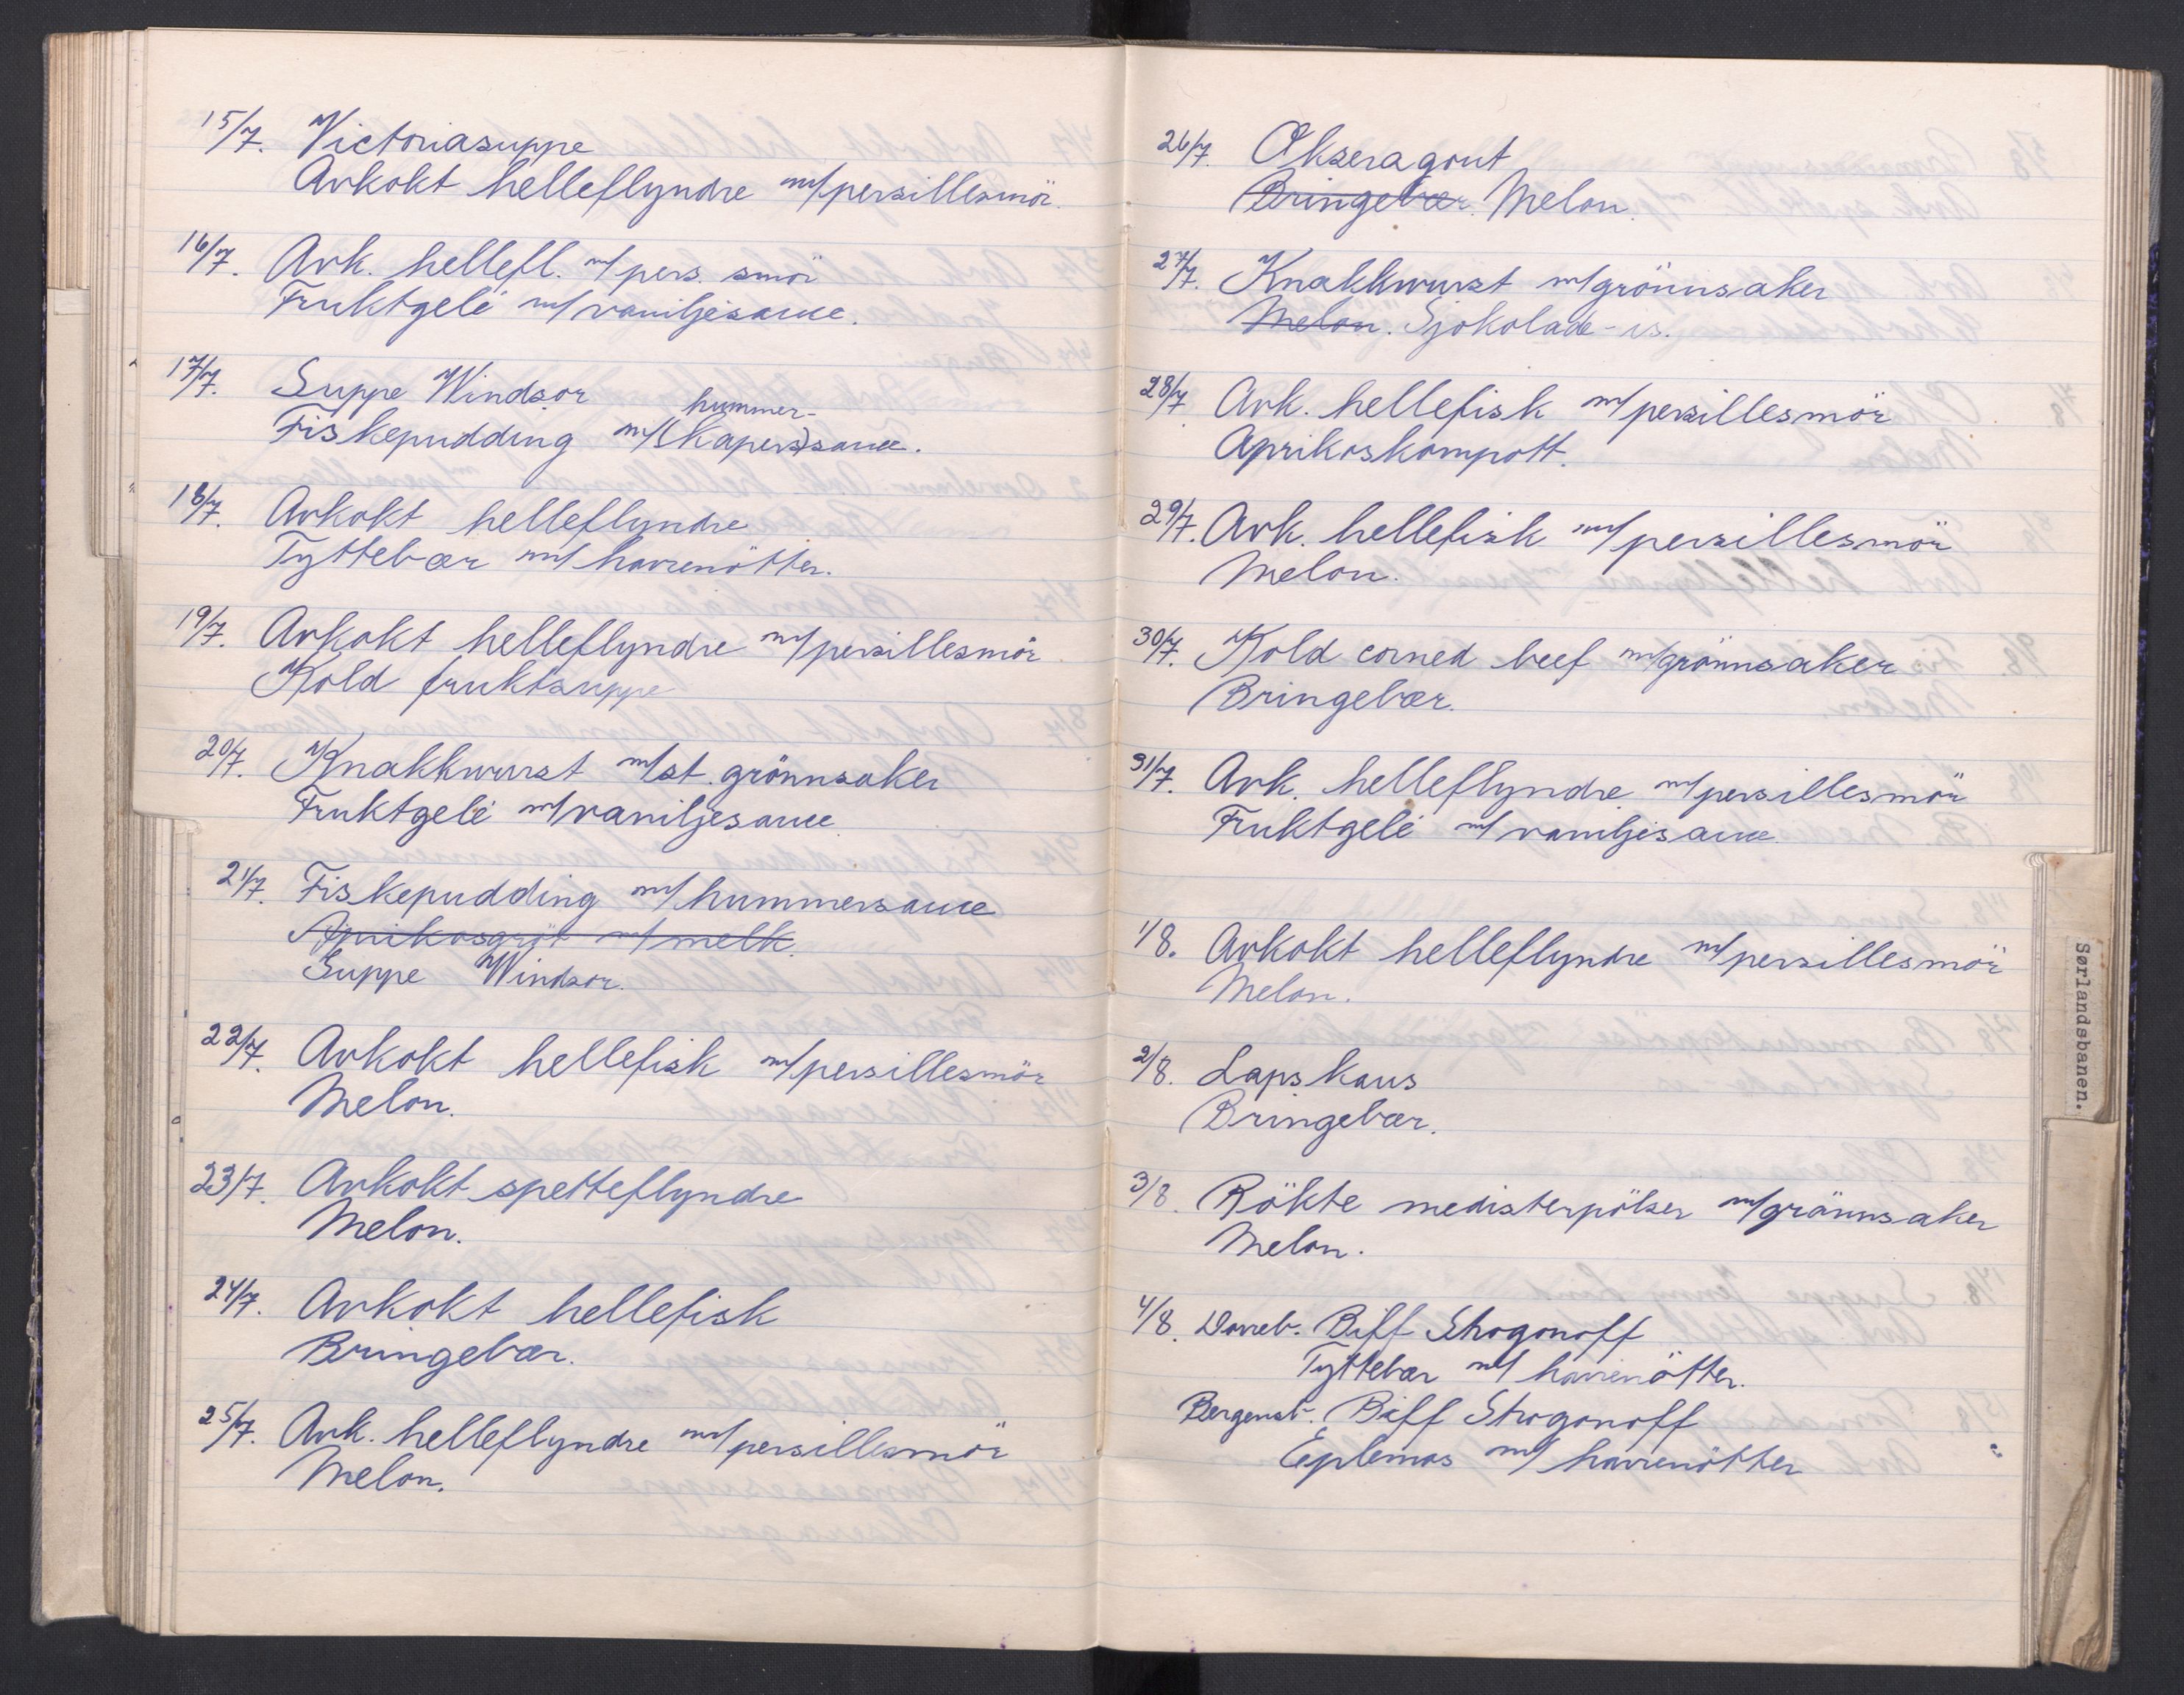 15/7. Victoriasuppe
Avkokt helleflyndre m/persillesmör.
16/7. Avk. hellefl. m/pers. smör
Fruktgelé m/vaniljesauce.
17/7. Suppe Windsor
hummer-
Fiskepudding m/(Kapers)sauce.
18/7. Avkokt helleflyndre
Tyttebær m/havrenötter.
19/7. Avkokt helleflyndre m/persillesmör
Kold fruktsuppe
20/7. Knakkwurst m/st. grönnsaker
Fruktgelé m/vaniljesauce
21/7. Fiskepudding m/hummersauce
Aprikosgröt m/melk.
Suppe Windsor.
22/7. Avkokt hellefisk m/persillesmör
Melon.
23/7. Avkokt spetteflyndre
Melon.
24/7. Avkokt hellefisk
Bringebær.
25/7. Avk. helleflyndre m/persillesmör
Melon.
26/7. Okseragout
Bringebær. Melon.
27/7. Knakkwurst m/grönnsaker
Melon. Sjokolade-is.
28/7 Avk. hellefisk m/persillesmör
Aprikoskompott.
29/7. Avk. hellefisk m/persillesmör
Melon.
30/7. Kold corned beef m/grönnsaker
Bringebær.
31/7. Avk. helleflyndre m/persillesmör
Fruktgelé m/vaniljesauce.
1/8. Avkokt helleflyndre m/persillesmör
Melon.
2/8. Lapskaus
Bringebær.
3/8. Rökte medisterpölser m/grönnsaker
Melon.
4/8. Dovreb. Biff Strogonoff
Tyttebær m/havrenötter.
Bergensb. Biff Strogonoff
Eplemos m/havrenötter
Sørlandsbanen.